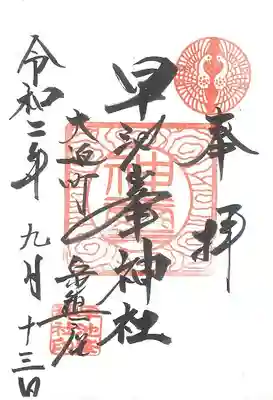 奉拝
早池峯神社
大迫町
令和二年 九月十三日